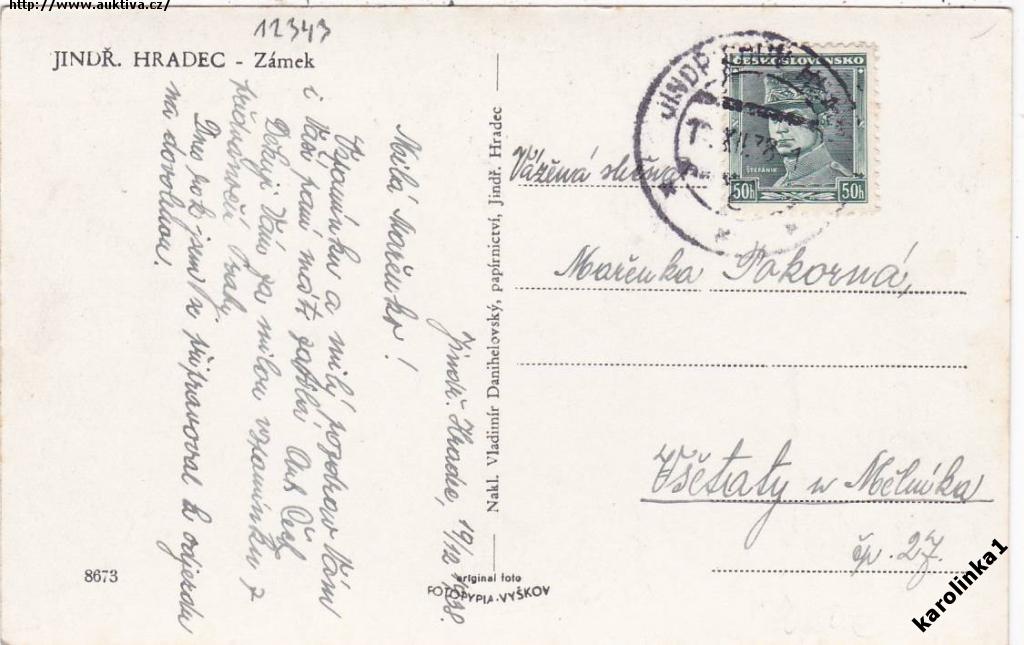 http://www.auktiva.cz/
12343
JINDŘ. HRADEC - Zámek
Jindř. Hradec, 19/12 1938.
Milá Mařenko!
Vzpomínku a milý pozdrav Vám
i Vaší paní mátě zasílá Ant.
Děkuji Vám za milou vzpomínku z
Prahy.
Dnes jsem se připravoval k odjezdu
na dovolenou.
8673
Nakl. Vladimír Danihelovský, papírnictví, Jindř. Hradec
original foto
FOTOTYPIA-VYŠKOV
JINDŘ
ČESKOSLOVENSKO
ŠTEFÁNIK
50h 50h
Vážená slečna
Mařenka Pokorná,
Všetaty u Mělníka
čp. 27.
karolinka1